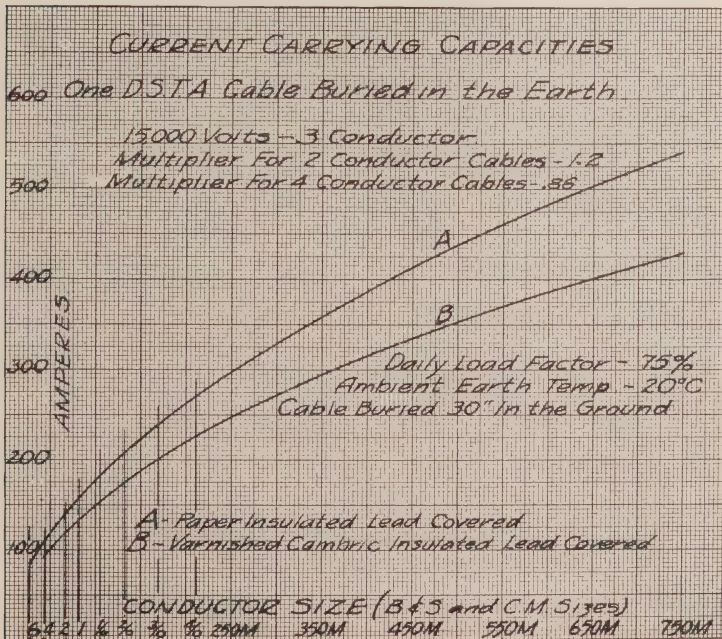 CURRENT CARRYING CAPACITIES
600 One DSTA Cable Buried in the Earth
15000 Volts - 3 Conductor
Multiplier For 2 Conductor Cables - 1.2
500 Multiplier For 4 Conductor Cables - .86
A
400
AMPERES
B
300
Daily Load Factor - 75%
Ambient Earth Temp - 20°C
Cable Buried 30" In the Ground
200
A - Paper Insulated Lead Covered
100 B - Varnished Cambric Insulated Lead Covered
CONDUCTOR SIZE (B & S and C.M. Sizes)
6 4 2 1 250M 350M 450M 550M 650M 750M